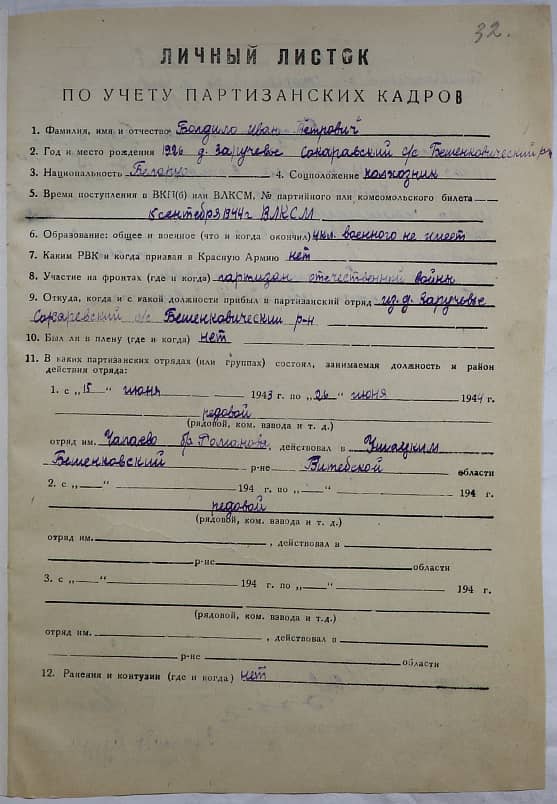 32.
ЛИЧНЫЙ ЛИСТОК
ПО УЧЕТУ ПАРТИЗАНСКИХ КАДРОВ
1. Фамилия, имя и отчество Болдило Иван Петрович
2. Год и место рождения 1926 д. Заручевье Сокаравский с/с Бешенковический р-н
3. Национальность Белорус 4. Соцположение колхозник
5. Время поступления в ВКП(б) или ВЛКСМ, № партийного или комсомольского билета
15 сентября 1944 г ВЛКСМ
6. Образование: общее и военное (что и когда окончил) 4 кл. военного не имеет
7. Каким РВК и когда призван в Красную Армию нет
8. Участие на фронтах (где и когда) партизан отечественной войны
9. Откуда, когда и с какой должности прибыл в партизанский отряд из д. Заручевье
Сокаревский с/с Бешенковический р-н
10. Был ли в плену (где и когда) нет
11. В каких партизанских отрядах (или группах) состоял, занимаемая должность и район
действия отряда:
1. с „15" июня 1943 г. по „26" июня 1944 г.
редовой
(рядовой, ком. взвода и т. д.)
отряд им. Чапаево бр. Романова, действовал в Ушацким
Бешенковский р-не Витебской области
2. с „—" 194 г. по „—" 194 г.
редовой
(рядовой, ком. взвода и т. д.)
отряд им. , действовал в
р-не области
3. с „—" 194 г. по „—" 194 г.
(рядовой, ком. взвода и т.д.)
отряд им. , действовал в
р-не области
12. Ранения и контузии (где и когда) нет